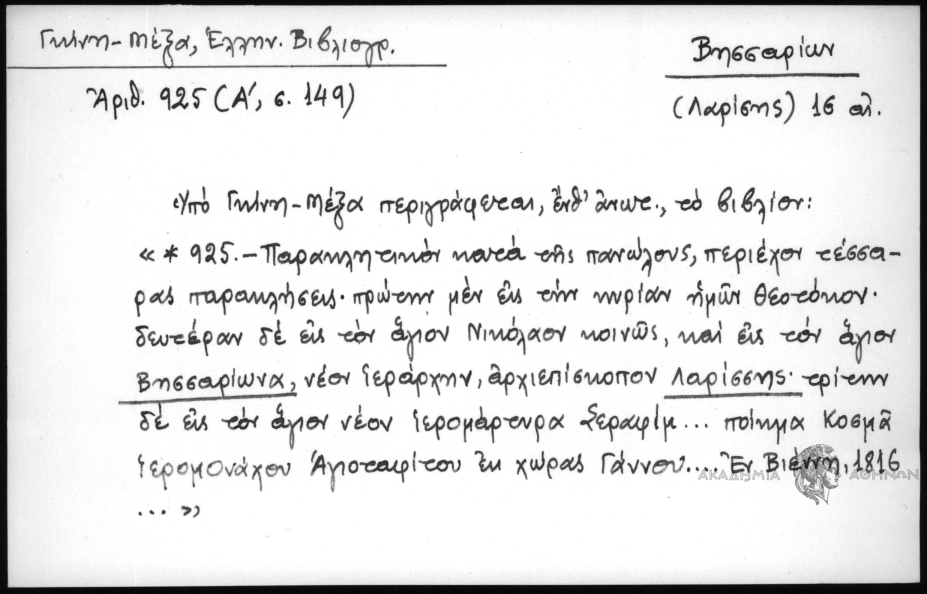 Γκίνη-Μέξα, Ἑλλην. Βιβλιογρ.
Ἀριθ. 925 (Α΄, σ. 149)
Βησσαρίων
(Λαρίσης) 16 αἰ.
Ὑπό Γκίνη-Μέξα περιγράφεται, ἔνθ' ἀνωτ., τὸ βιβλίον:
« * 925. – Παρακλητικὸν κατὰ τῆς πανώλους, περιέχον τέσσα-
ρας παρακλήσεις· πρώτην μὲν εἰς τὴν κυρίαν ἡμῶν Θεοτόκον·
δευτέραν δὲ εἰς τὸν ἅγιον Νικόλαον κοινῶς, καὶ εἰς τὸν ἅγιον
Βησσαρίωνα, νέον ἱεράρχην, ἀρχιεπίσκοπον Λαρίσσης· τρίτην
δὲ εἰς τὸν ἅγιον νέον ἱερομάρτυρα Σεραφίμ... ποίημα Κοσμᾶ
ἱερομονάχου Ἁγιοταφίτου ἐκ χώρας Γάννου.... Ἐν Βιέννῃ, 1816
... »
ΑΚΑΔΗΜΙΑ ΑΘΗΝΩΝ